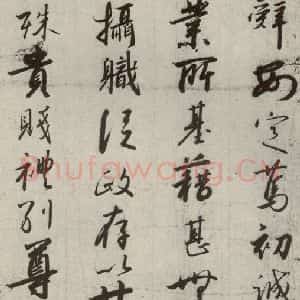 辭安定篤初誠
業所基藉甚無
攝職從政存以甘
殊貴賤禮別尊
Shufawang.Cn